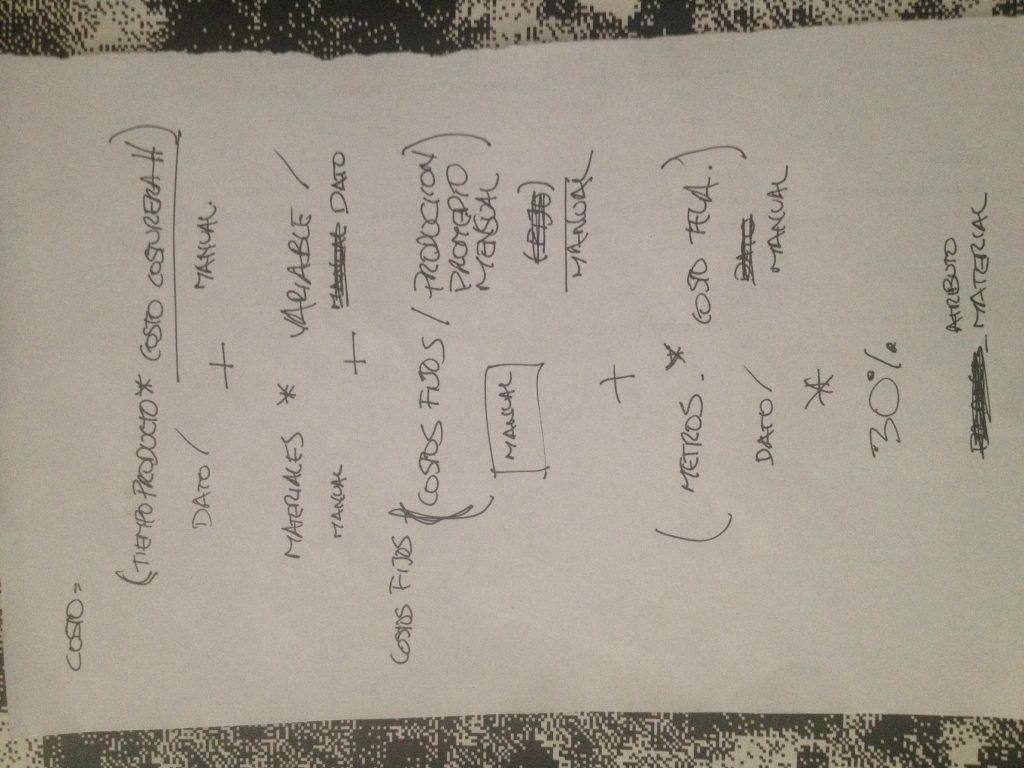 COSTO =
(TIEMPO PRODUCTO * COSTO COSTURERA H)
DATO / MANUAL.
+
MATERIALES * VARIABLE /
MANUAL DATO
+
COSTOS FIJOS * (COSTOS FIJOS / PRODUCCION/
PROMEDIO
MENSUAL)
MANUAL MANUAL
+
(METROS. * COSTO TELA.)
DATO / MANUAL
*
30%
ATRIBUTO
MATERIAL